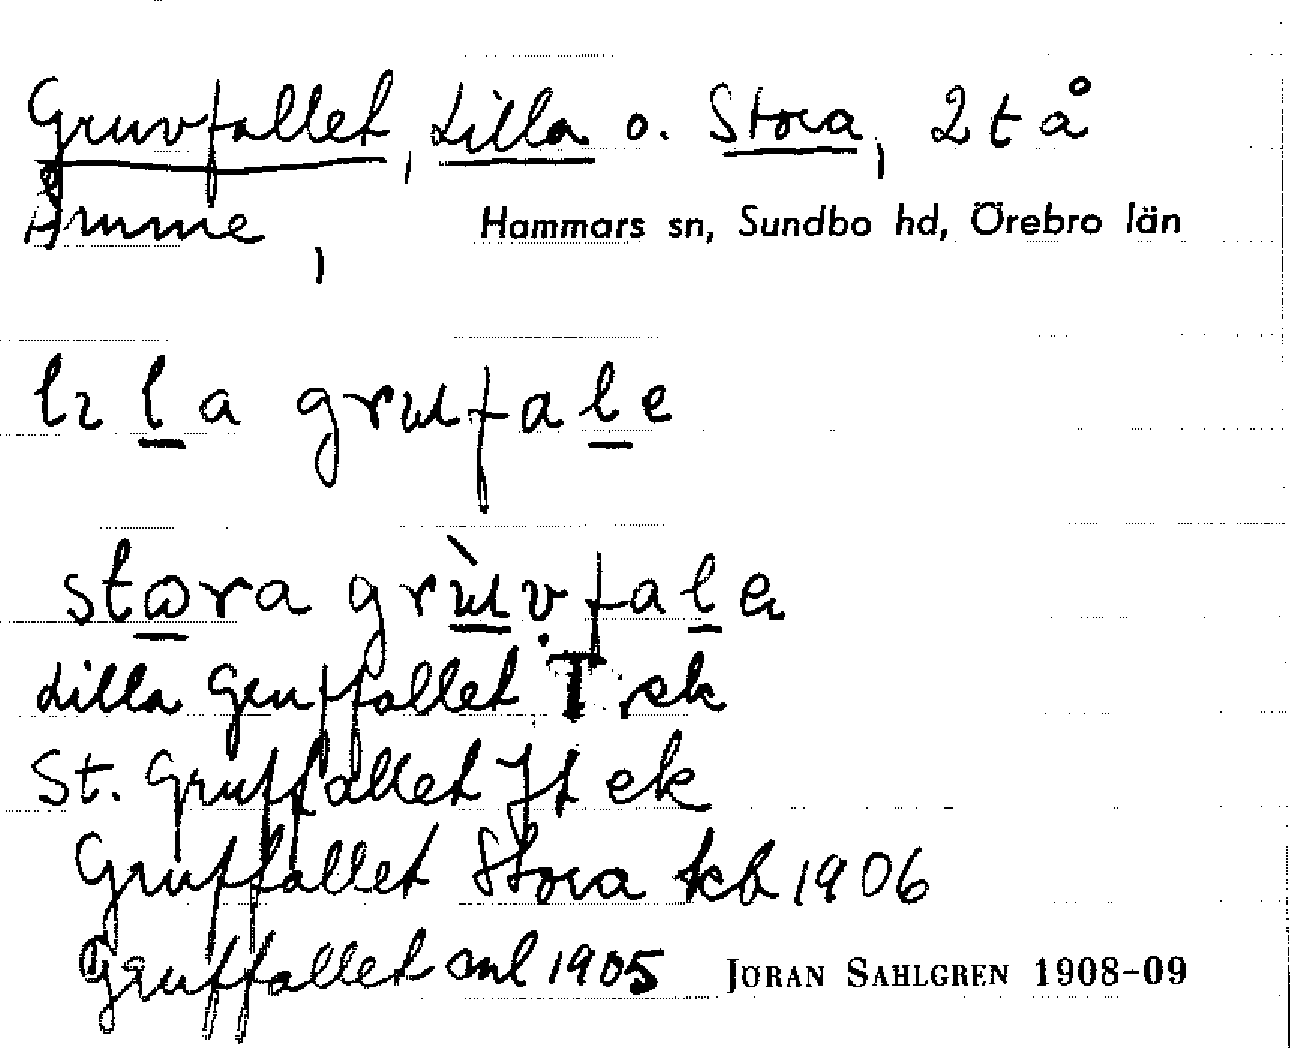 Gruvfallet, Lilla o. Stora, 2 t å
Åmme, Hammars sn, Sundbo hd, Örebro län
lɩla grɯfale
stωra grɯ̀vfale
Lilla Gruffallet T. ek
St. Gruffallet Jt ek
Gruffallet Stora kb 1906
Gruffallet ml 1905 JÖRAN SAHLGREN 1908-09